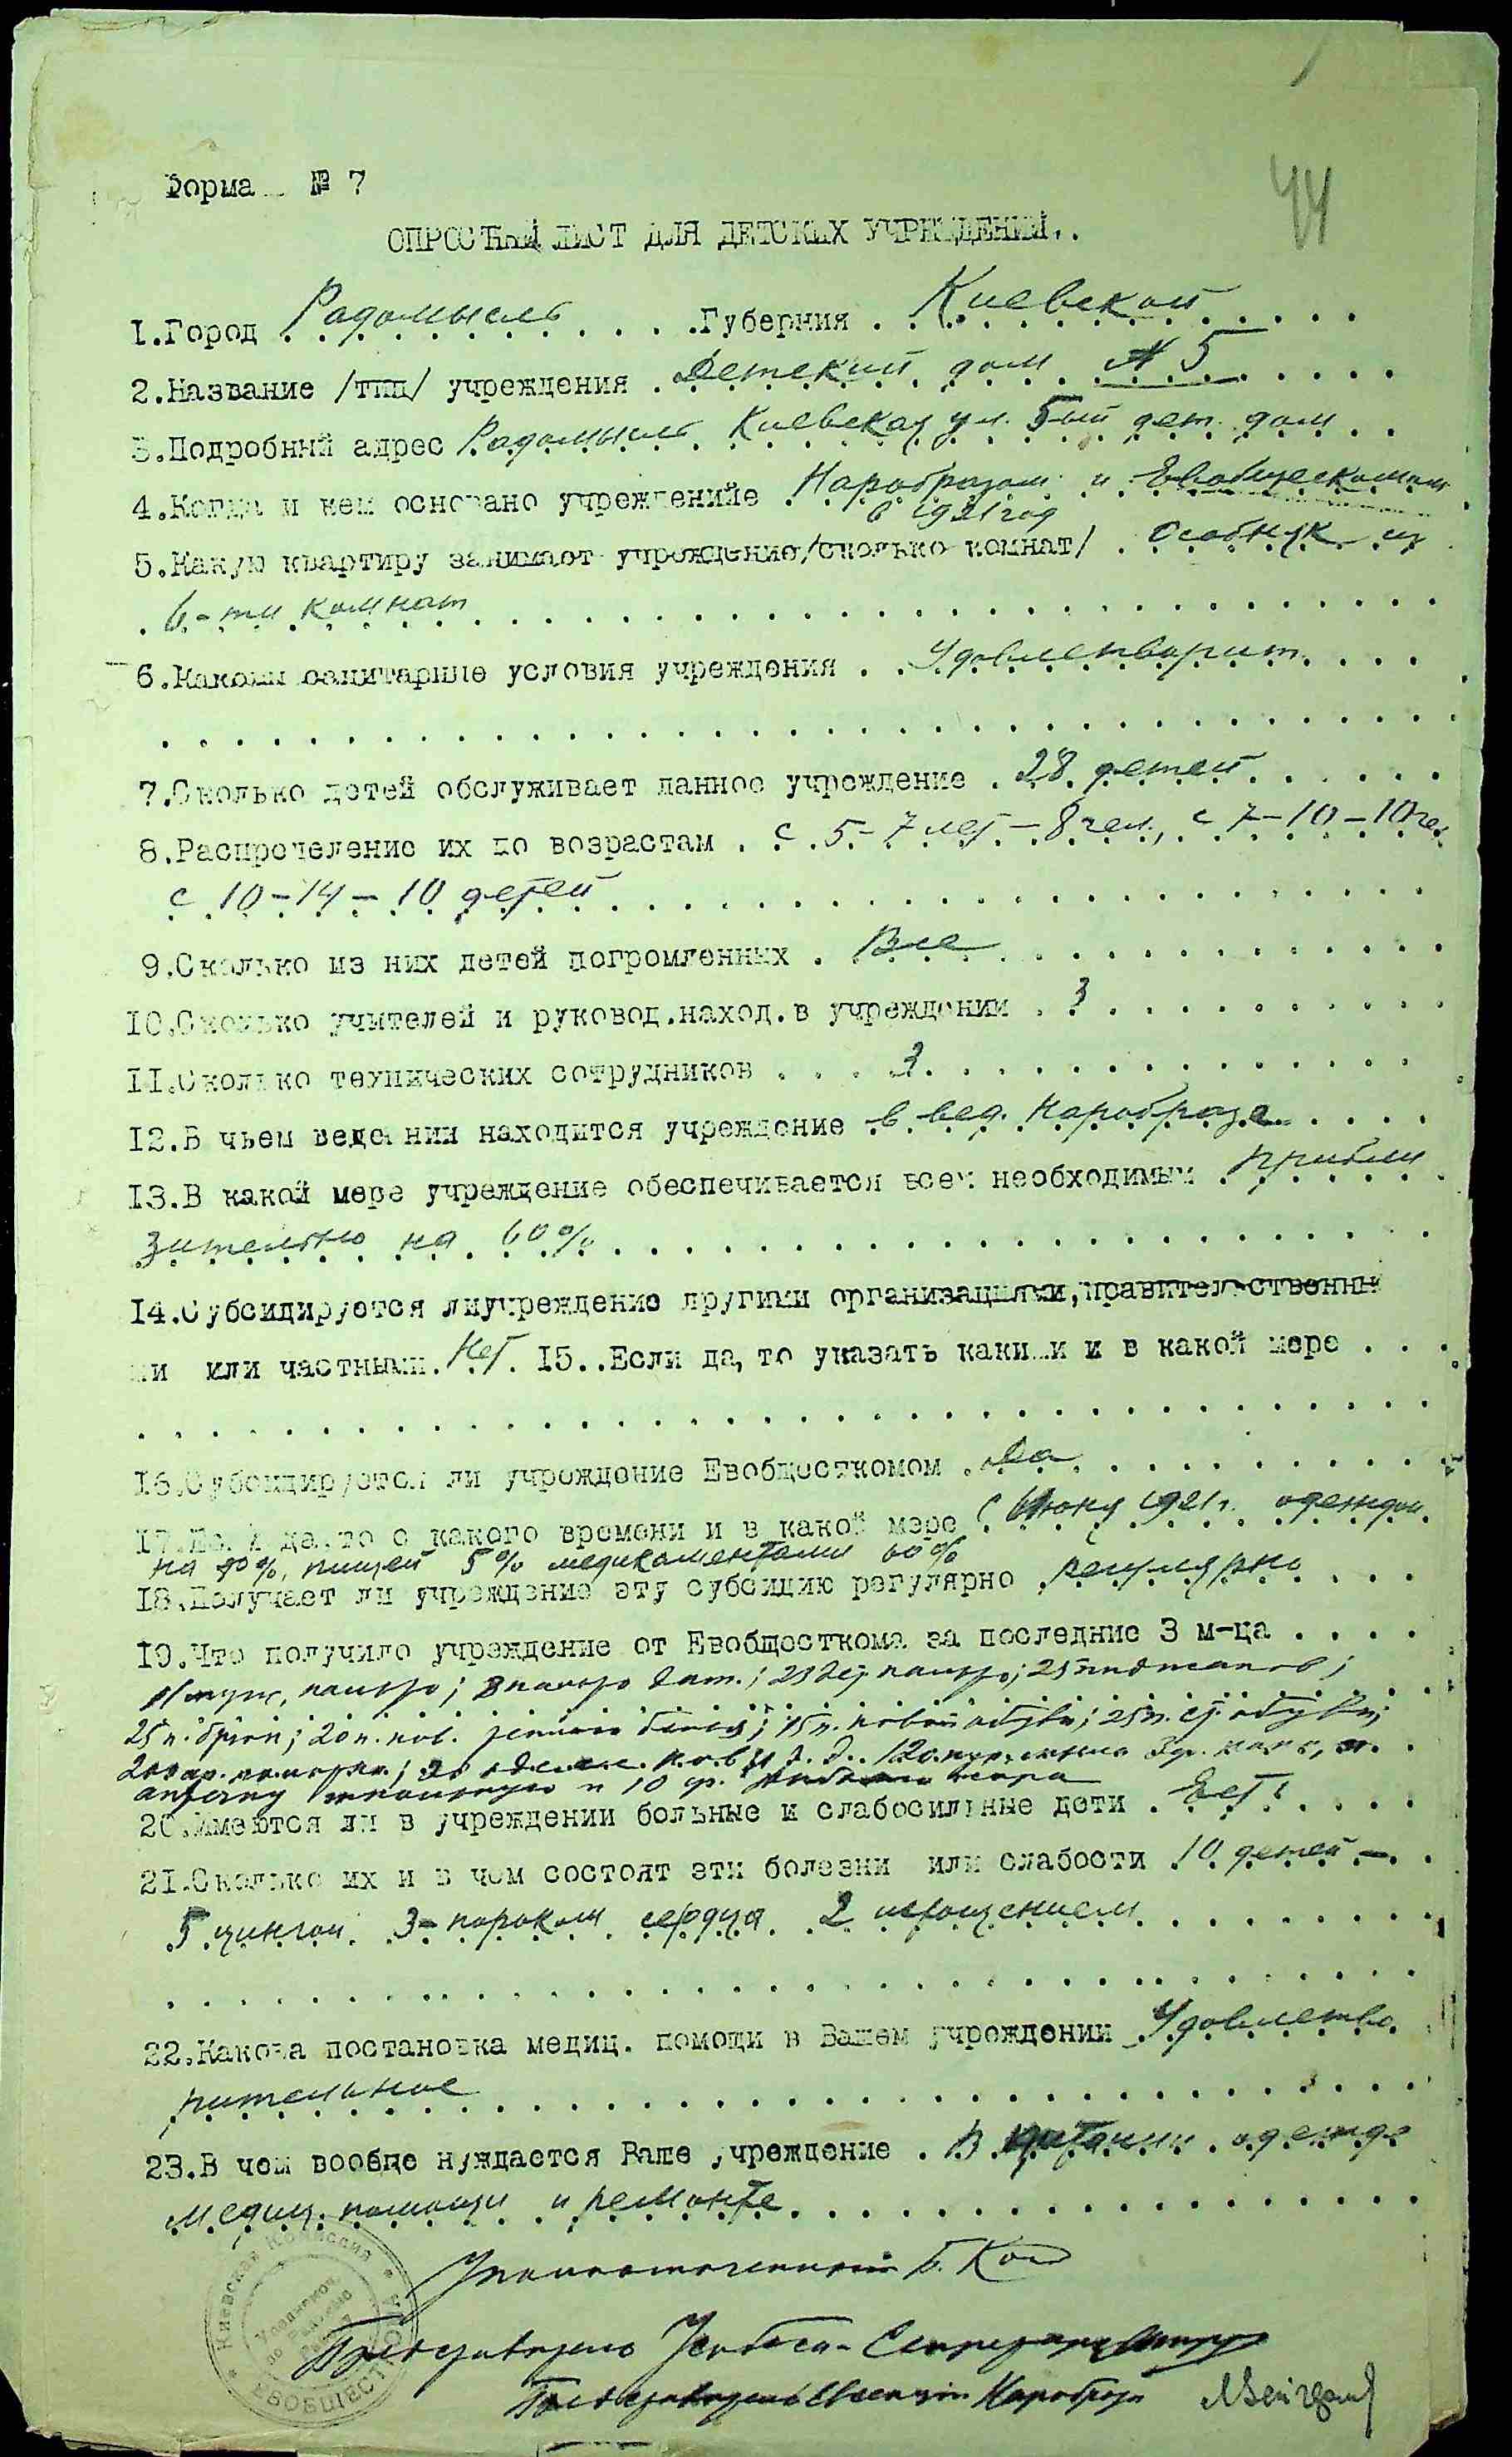 44
Форма № 7
ОПРОСНЫЙ ЛИСТ ДЛЯ ДЕТСКИХ УЧРЕЖДЕНИЙ.
1.Город Радомысль Губерния Киевской
2.Название /тип/ учреждения Детский дом № 5
3.Подробный адрес Радомысль Киевская ул. 5ый дет. дом
4.Когда и кем основано учреждение Наробразом и Евобщескомом
в 1921 год
5.Какую квартиру занимает учреждение/сколько комнат/ Особняк из
6-ти комнат
6.Каковы санитарные условия учреждения Удовлетворит.
7.Сколько детей обслуживает данное учреждение 28 детей
8.Распределение их по возрастам с 5-7 лет - 8 чел., с 7-10-10 чел.
с 10-14-10 детей
9.Сколько из них детей погромленных Все
10.Сколько учителей и руковод.наход.в учреждении 3
11.Сколько технических сотрудников 3
12.В чьем ведении находится учреждение в вед. Наробраза
13.В какой мере учреждение обеспечивается всем необходимым прибли
зительно на 60%
14.Субсидируется ли учреждение другими организациями, правительственны
ми или частными. Нет. 15. Если да, то указать какими и в какой мере
16.Субсидируется ли учреждение Евобщесткомом Да
17.Если да,то с какого времени и в какой мере с Июня 1921г. одеждой
на %, пищей 5% медикаментами 60%
18.Получает ли учреждение эту субсидию регулярно регулярно
19.Что получило учреждение от Евобщесткома за последние 3 м-ца
пальто; 3 пальто дам.; 23 дет. пальто; 25 пиджаков;
25 п. брюк; 20 п. нов. белья; 15 п. новой обуви; 25 п. ст. обуви;
200 ар. 20 и 10 ф.
20.Имеются ли в учреждении больные и слабосильные дети Есть
21.Сколько их и в чем состоят эти болезни или слабости 10 детей -
5 цингой 3-пороком сердца 2 истощением
22.Какова постановка медиц. помощи в Вашем учреждении Удовлетво
рительное
23.В чем вообще нуждается Ваше учреждение В питании одежде
медиц. помощи и ремонте
Уполномоченный Б. Коп
Председатель Секретарь
Председатель Евсекции Наробраза
Киевская Комиссия
ЕВОБЩЕСТКОМ